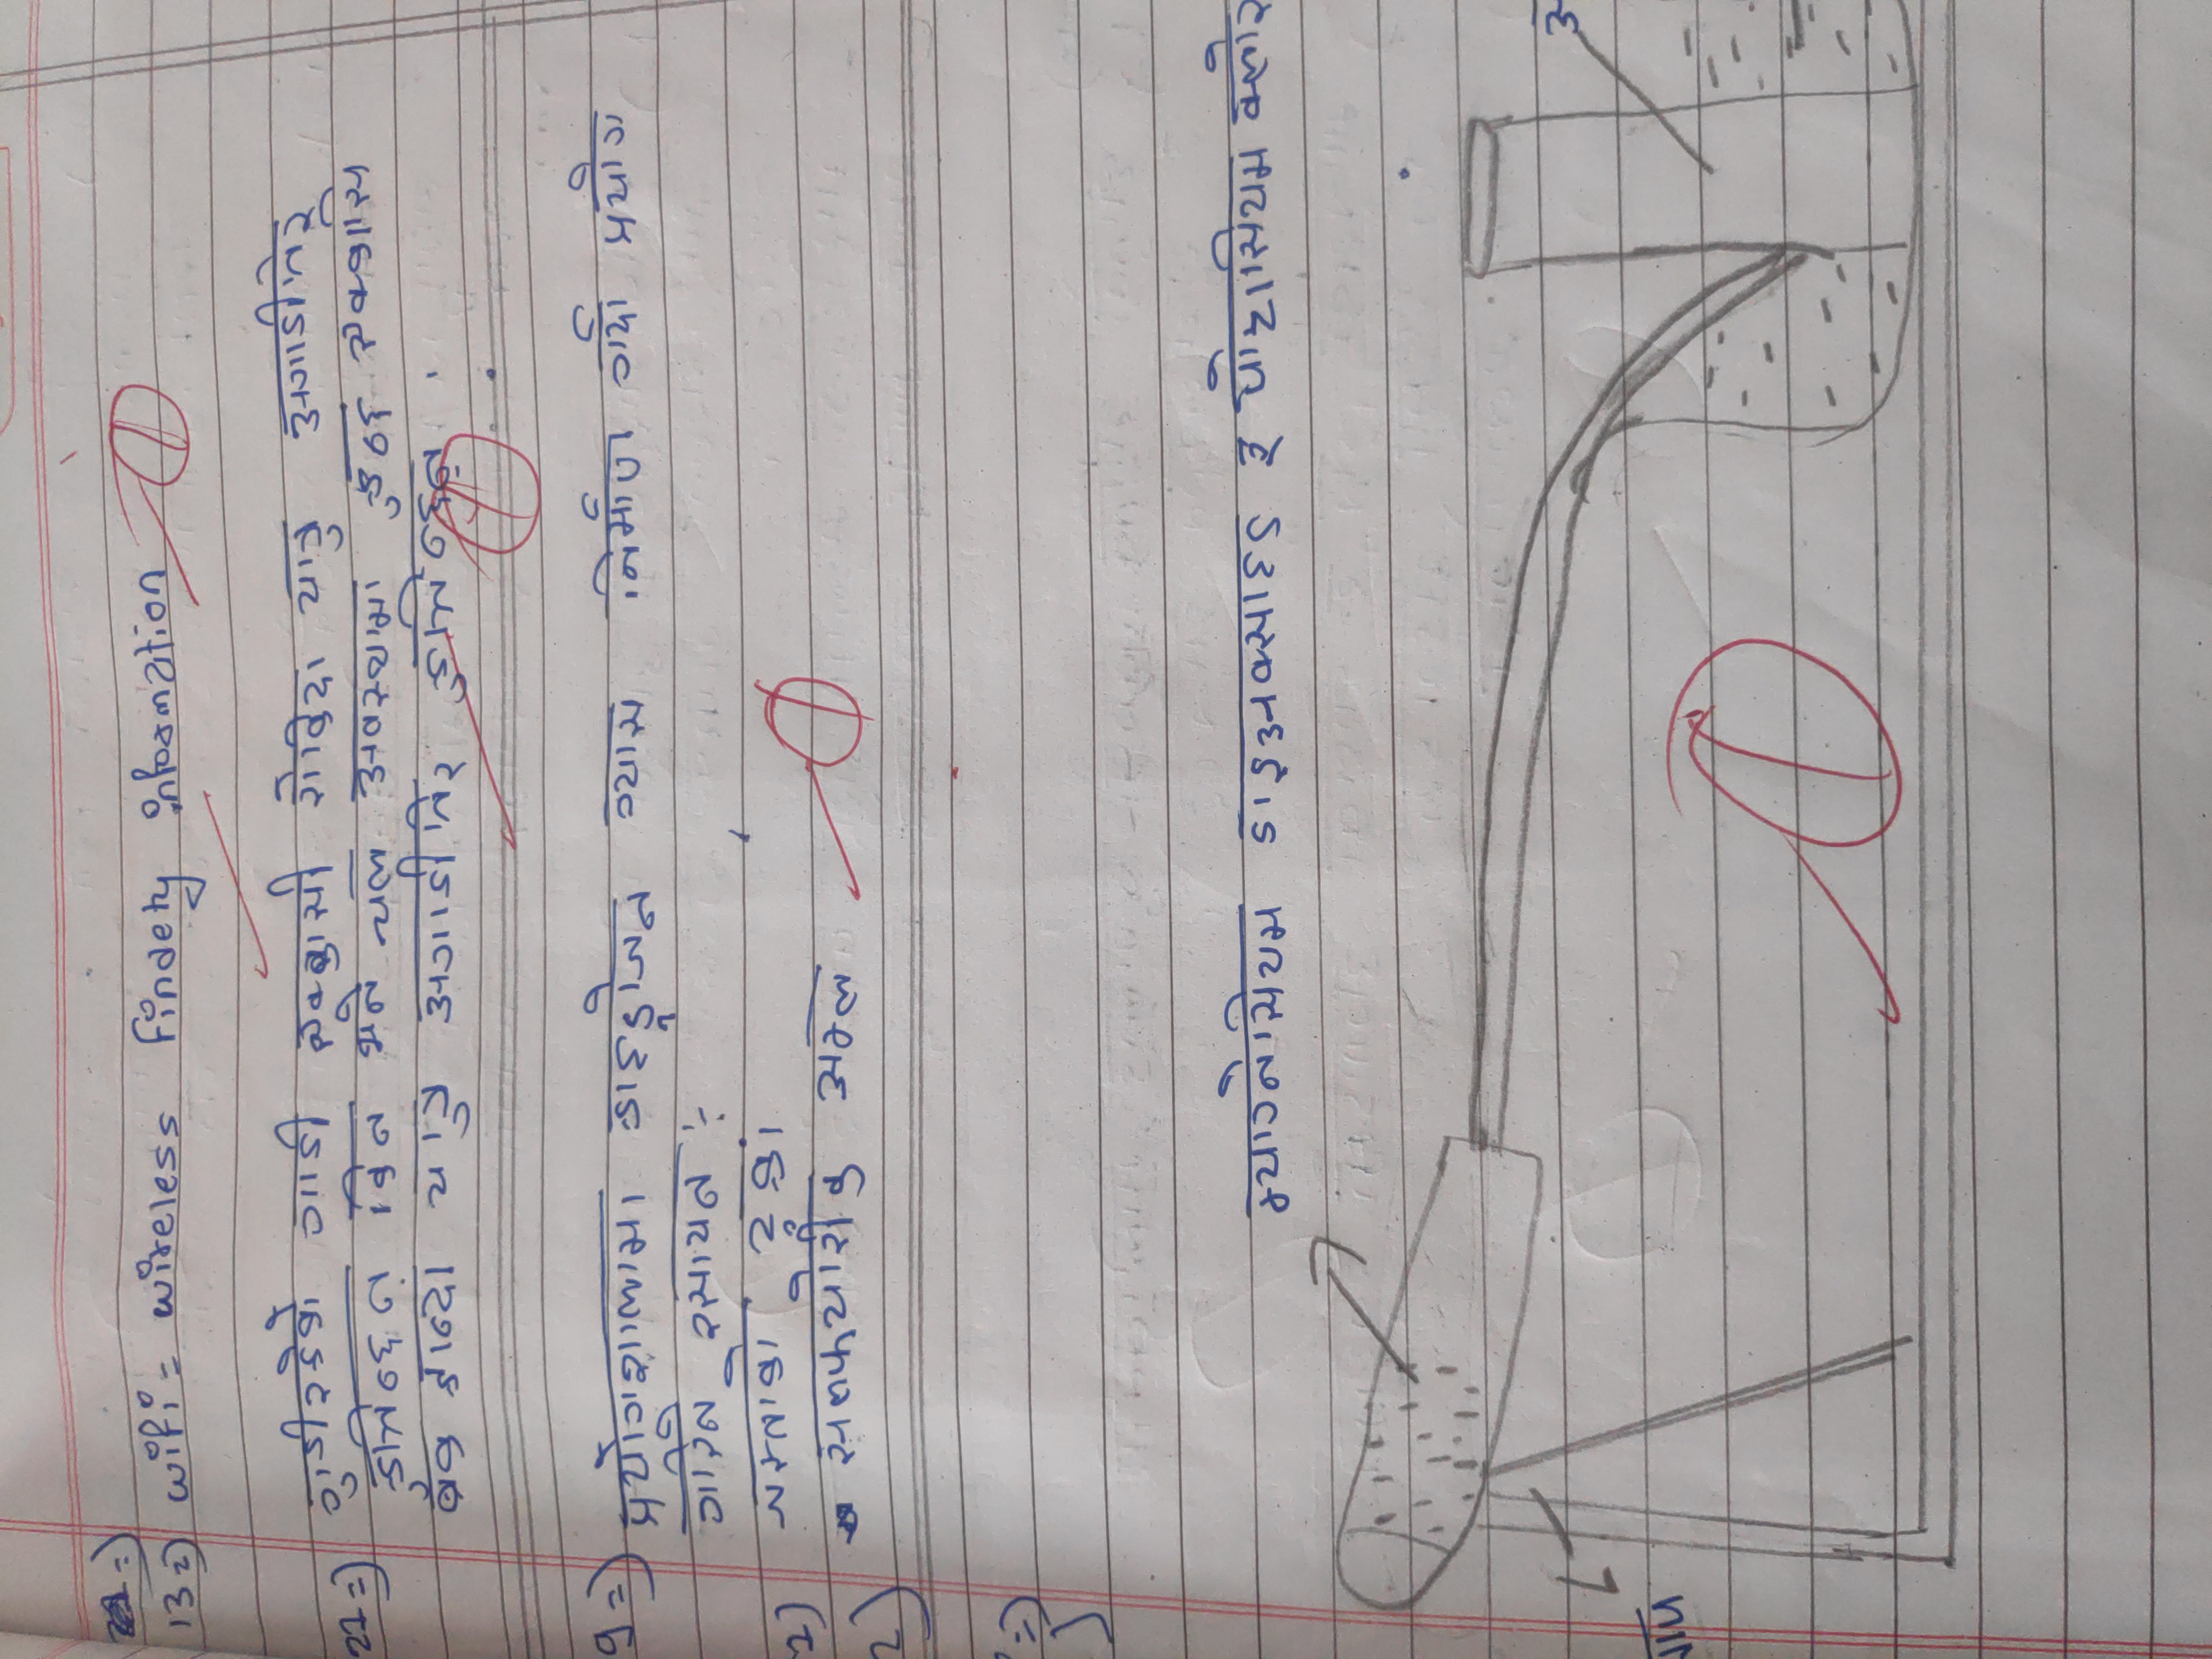 13=) wifi = wireless findety information
27=) गुडीरहेको गाडी एक्कासी रोकिदा यात्रु अगाडीतिर
हुत्तिन्छन् किन भने चल अवस्थामा हुन्छ एक्कासि
ब्रेक हान्दा यात्रु अगाडीतिर हुत्तिन्छन् .
9=) प्रयोगशालामा हाइड्रोजन ग्यास निर्माण गर्दा प्रयोग
गरिने रसायन :-
1) जस्ताको टुक्रा
2) सल्फ्योरीक अम्ल
=)
म्याग्नेसियम डाइअक्साइड र पोटासियम क्लोर